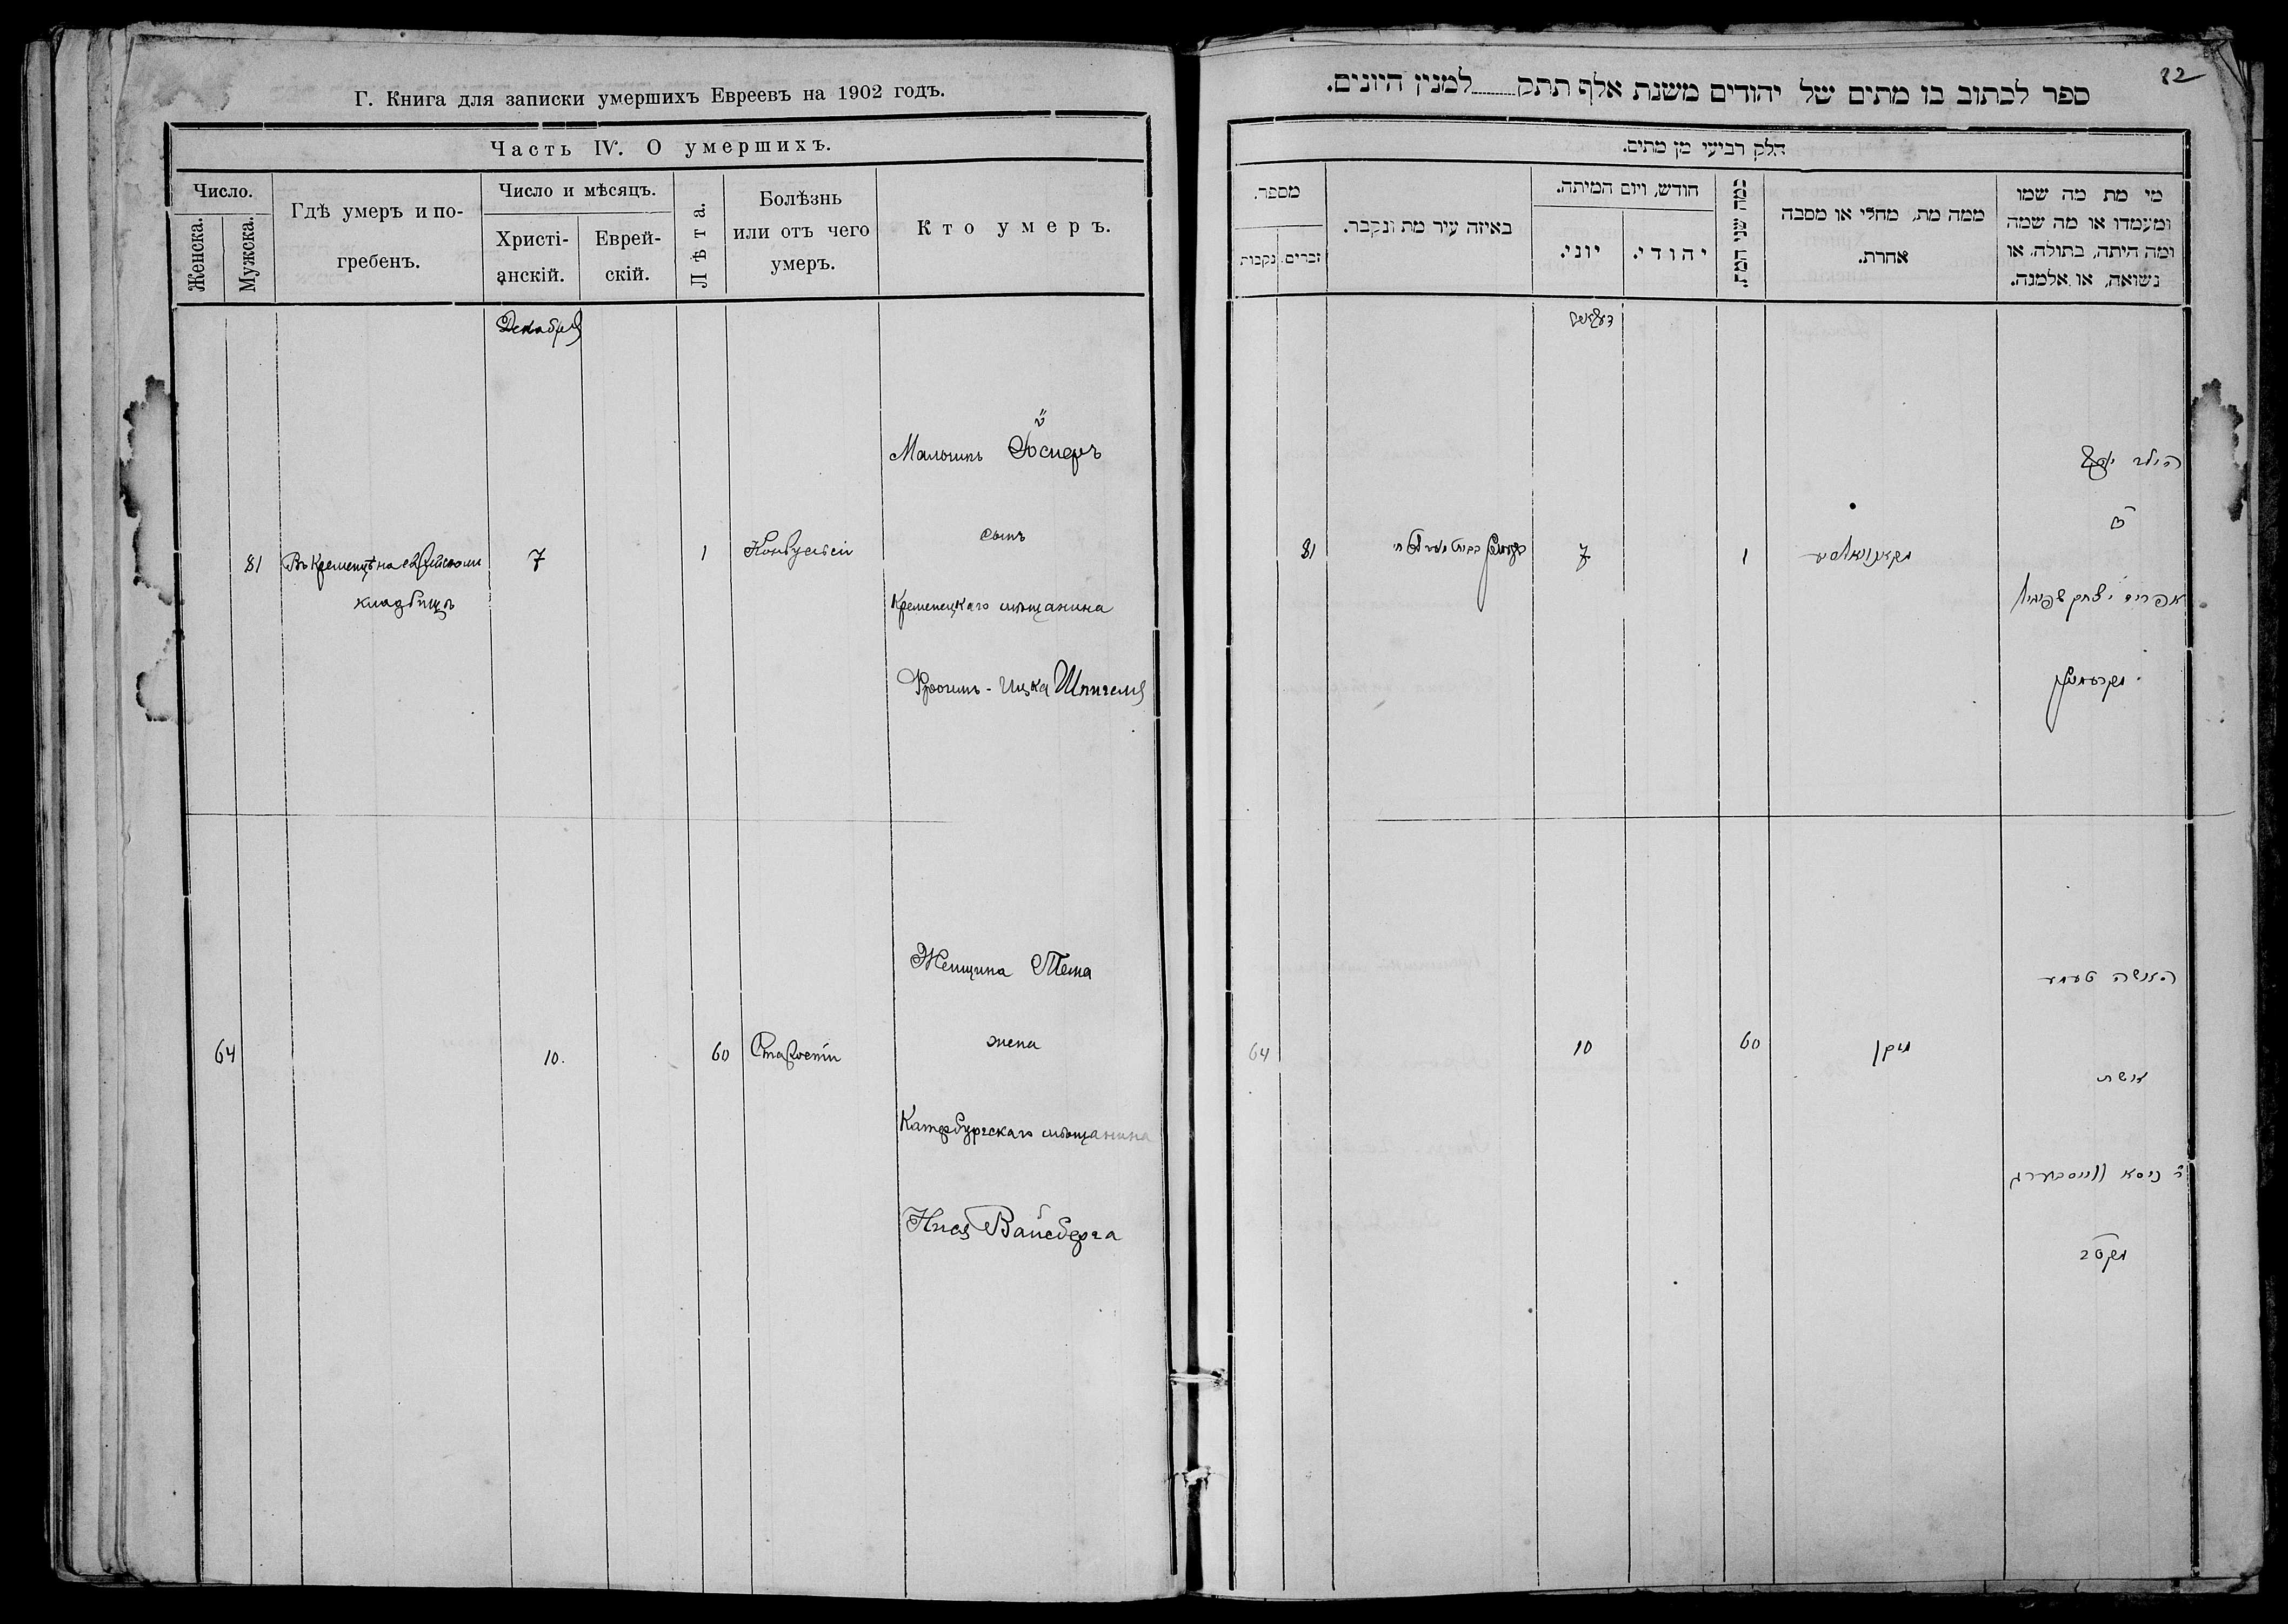 Г. Книга для записки умершихъ Евреевъ на 1902 годъ.
Часть IV. О умершихъ.
Число.
Женска.
Мужска.
Гдѣ умеръ и по-
гребенъ.
Число и мѣсяцъ.
Христі-
анскій.
Еврей-
скій.
Лѣта.
Болѣзнь
или отъ чего
умеръ.
Кто умеръ.
Декабря
Мальчикъ
сынъ
81 Въ Кременцѣ на еврейскомъ 7 1 Конвульсіи
кладбищѣ
Кременецкаго мѣщанина
Фроимъ-Ицка Шпигеля
Женщина Тема
жена
64 10. 60 Старости
Катербургскаго мѣщанина
Нися Вайсберга
82
ספר לכתוב בו מתים של יהודים משנת אלף תתק למנין היונים.
חלק רביעי מן מתים.
מספר.
נקבות
זכרים.
באיזה עיר מת ונקבר.
חודש, ויום המיתה.
יוני.
יהודי.
כמה שני המת.
ממה מת, מחלי או מסבה
אחרת.
מי מת מה שמו
ומעמדו או מה שמה
ומה היתה, בתולה, או
נשואה, או אלמנה.
הילד
81 7 1
אפרים יצחק שפיגיל
מקרעמניץ
האשה טעמע
64 10 60 זקן
אשת
ר' ניסא ווייסבערג